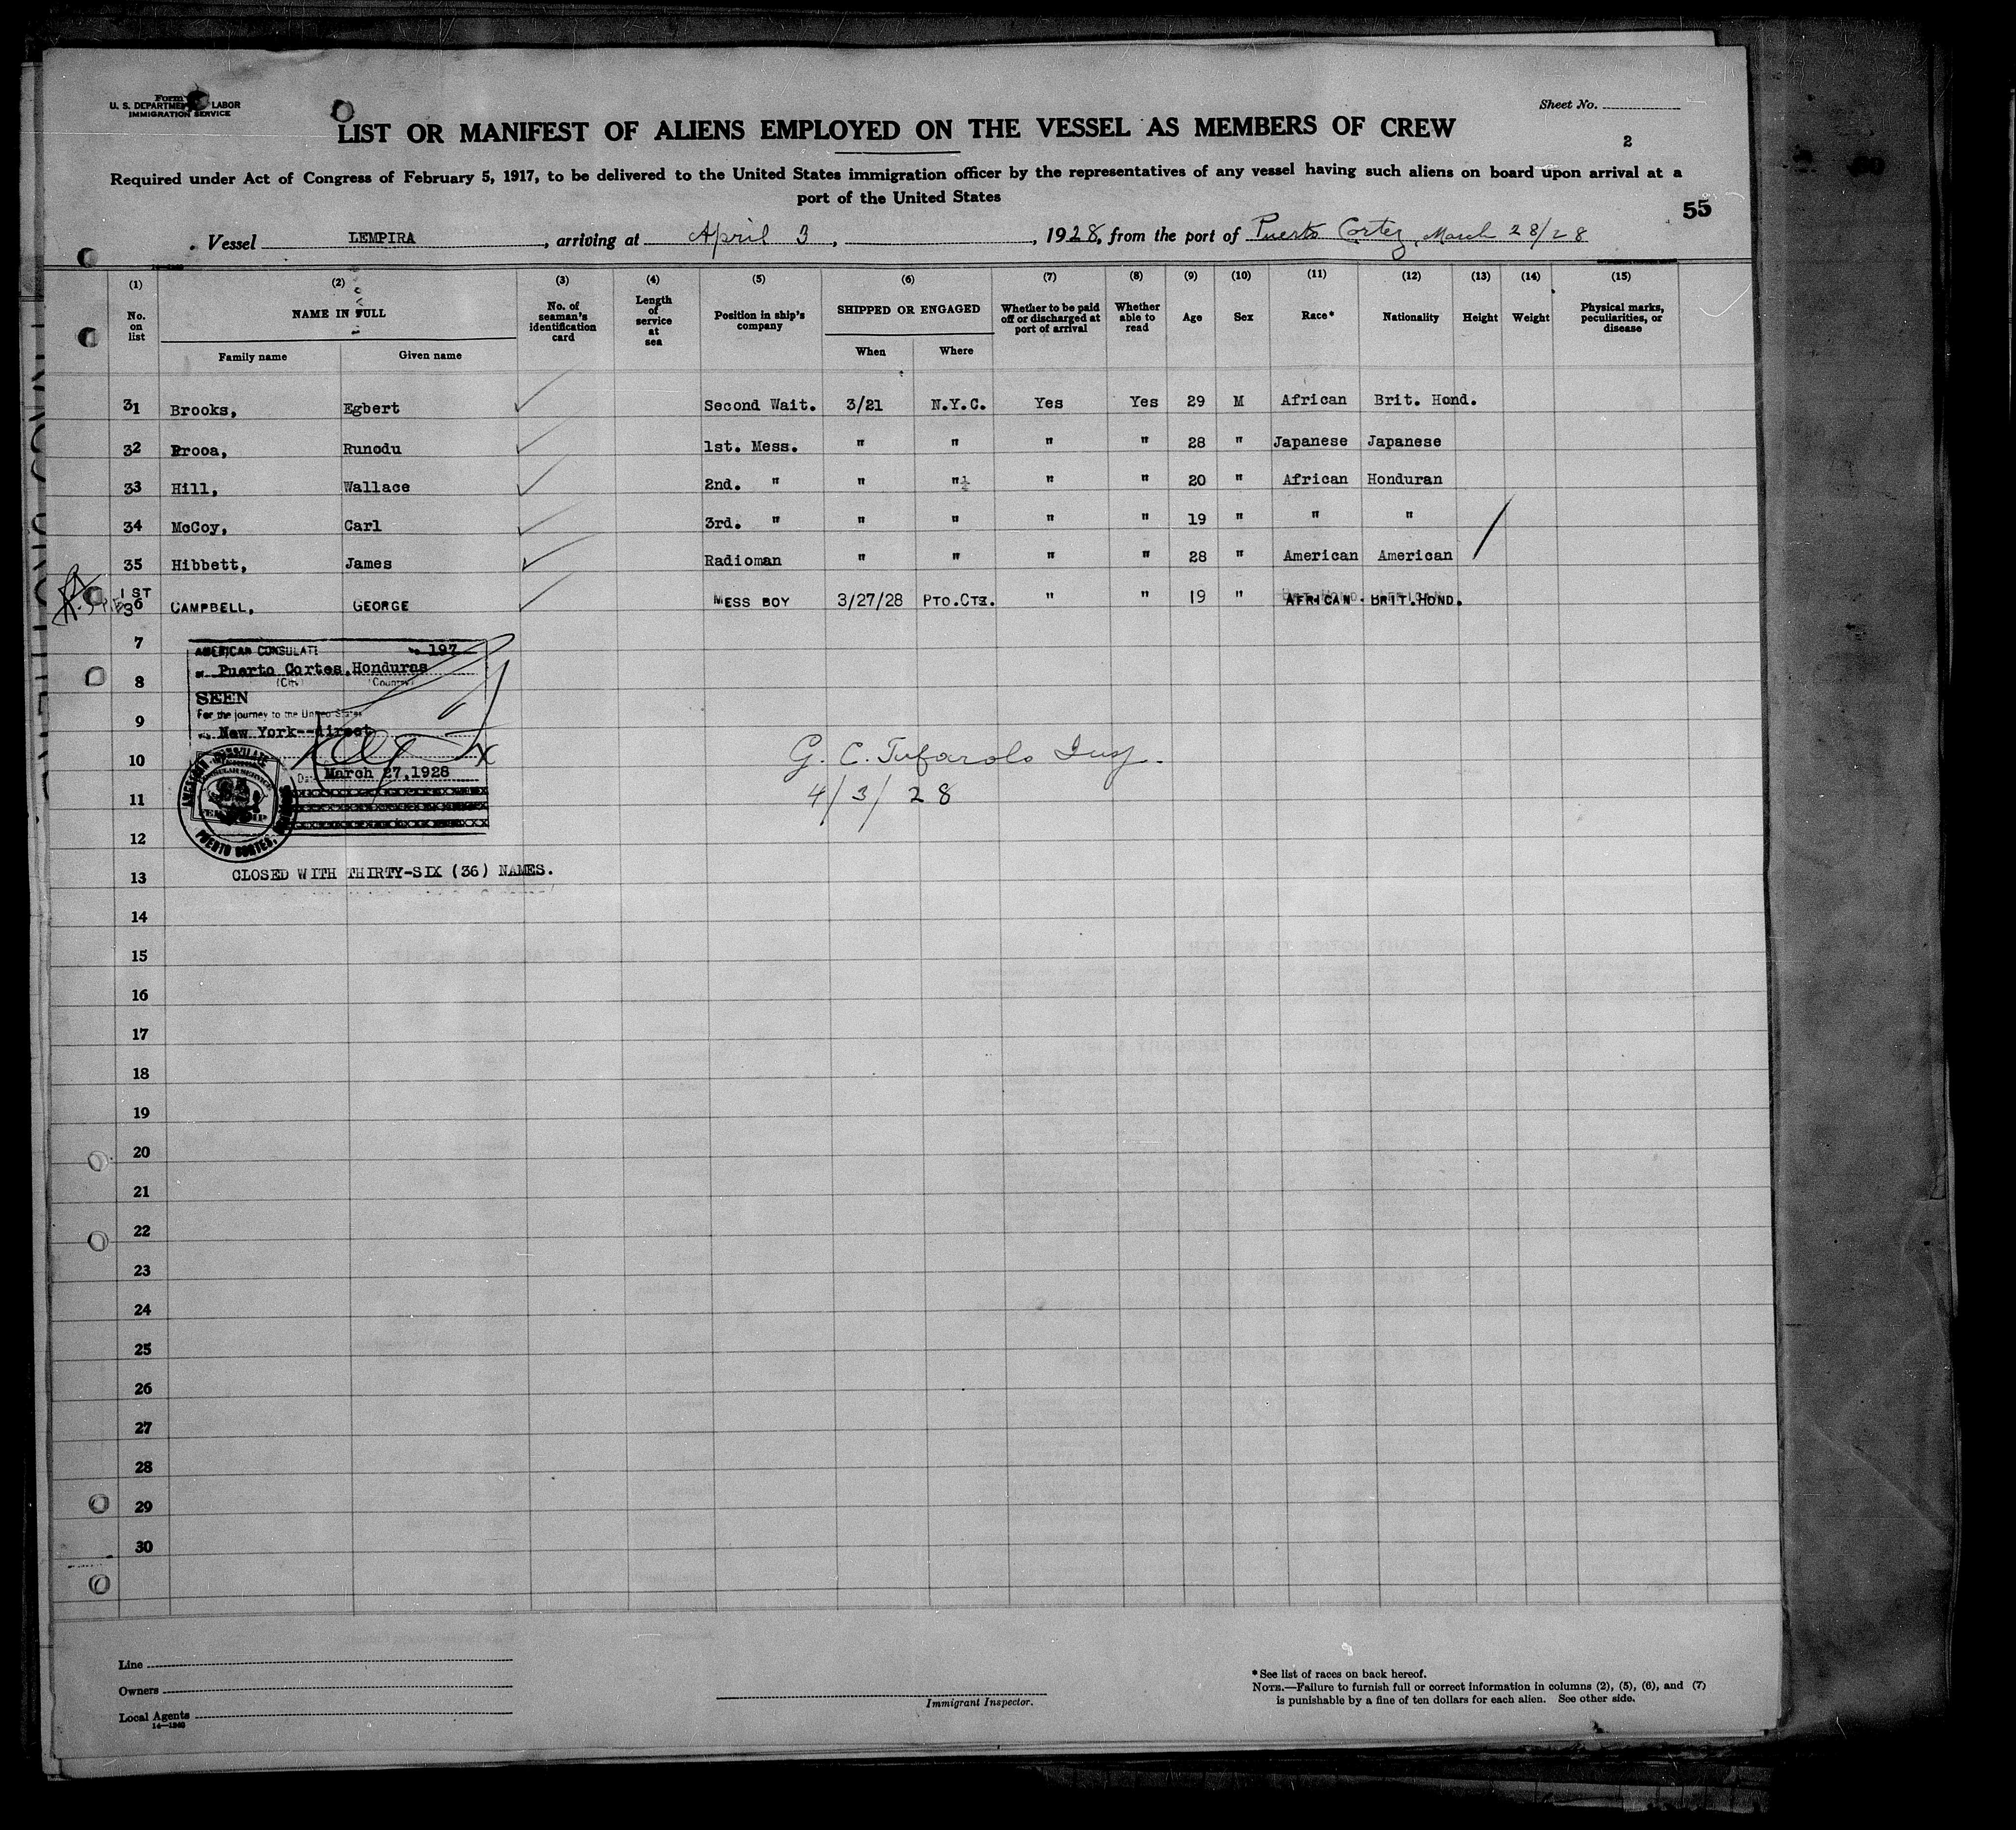 Form
U. S. DEPARTMENT LABOR
IMMIGRATION SERVICE
Sheet No.
LIST OR MANIFEST OF ALIENS EMPLOYED ON THE VESSEL AS MEMBERS OF CREW
2
Required under Act of Congress of February 5, 1917, to be delivered to the United States immigration officer by the representatives of any vessel having such aliens on board upon arrival at a
port of the United States
55
Vessel LEMPIRA, arriving at April 3, , 1928, from the port of Puerto Cortez, March 28/28
(1) (2) (3) (4) (5) (6) (7) (8) (9) (10) (11) (12) (13) (14) (15)
No. on list NAME IN FULL No. of seaman's identification card Length of service at sea Position in ship's company SHIPPED OR ENGAGED Whether to be paid off or discharged at port of arrival Whether able to read Age Sex Race* Nationality Height Weight Physical marks, peculiarities, or disease
Family name Given name When Where
31 Brooks, Egbert Second Wait. 3/21 N.Y.C. Yes Yes 29 M African Brit. Hond.
32 Brooa, Runodu 1st. Mess. " " " " 28 " Japanese Japanese
33 Hill, Wallace 2nd. " " " " " 20 " African Honduran
34 McCoy, Carl 3rd. " " " " " 19 " " "
35 Hibbett, James Radioman " " " " 28 " American American
1ST
36 CAMPBELL, GEORGE MESS BOY 3/27/28 PTO.CTZ. " " 19 " AFRICAN BRIT.HOND.
7
AMERICAN CONSULATE No 197
at Puerto Cortes, Honduras
8
(City) (Country)
SEEN
For the journey to the United States
9
via New York--direct
10
Date March 27,1928
AMERICAN CONSULATE
PUERTO CORTES,
G. C. Tufarolo Insp.
4/3/28
11
12
CLOSED WITH THIRTY-SIX (36) NAMES.
13
14
15
16
17
18
19
20
21
22
23
24
25
26
27
28
29
30
Line
Owners
Local Agents
14—1240
Immigrant Inspector.
*See list of races on back hereof.
NOTE.—Failure to furnish full or correct information in columns (2), (5), (6), and (7)
is punishable by a fine of ten dollars for each alien. See other side.